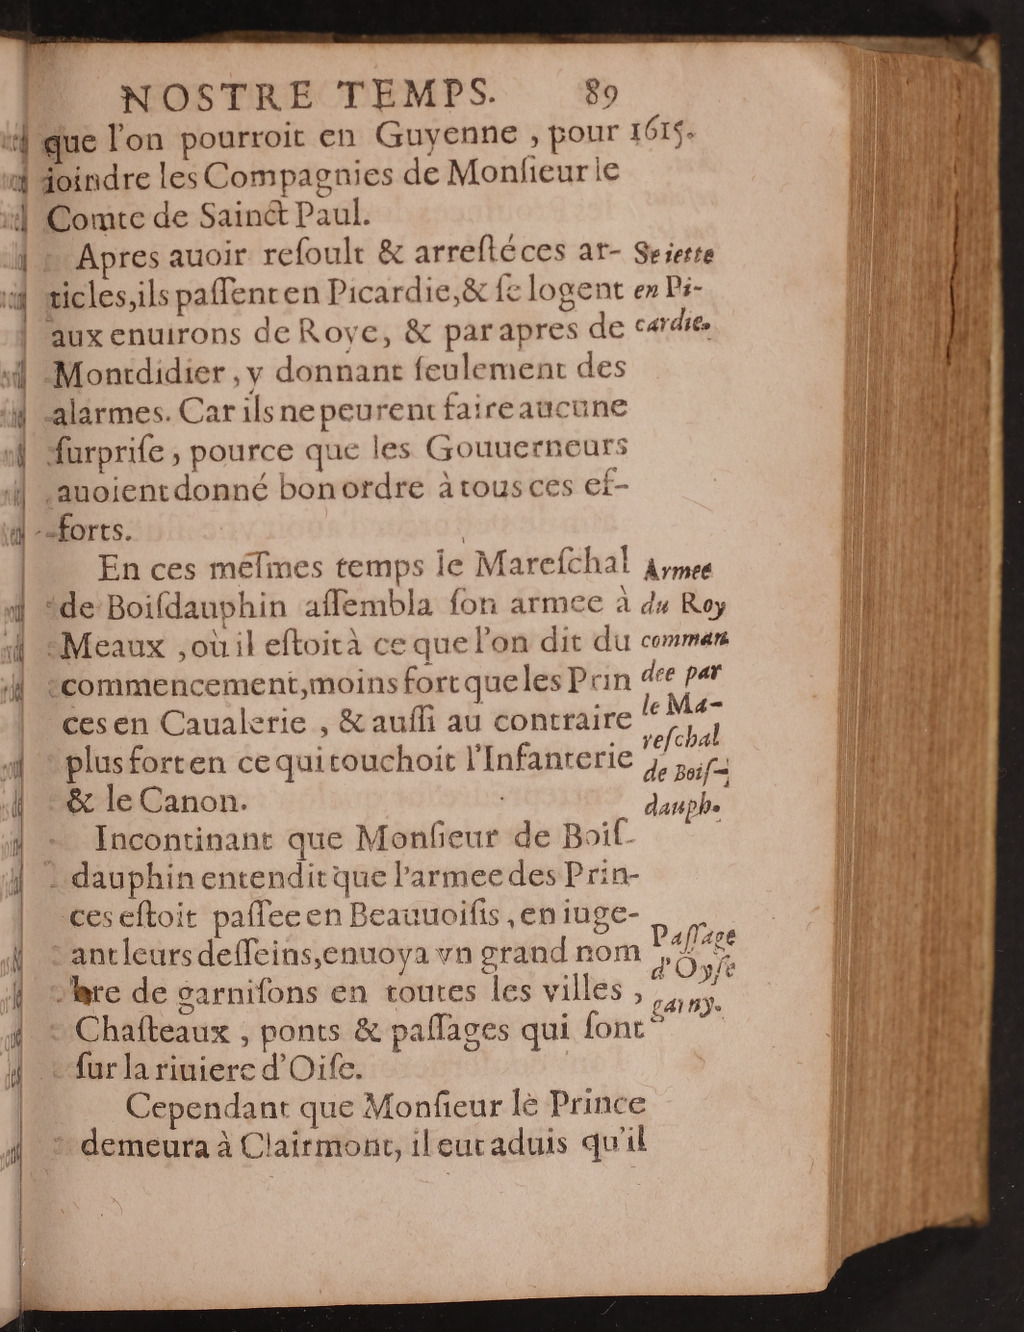 NOSTRE TEMPS. 89
que l'on pourroit en Guyenne , pour 1615.
ioindre les Compagnies de Monſieur le
Comte de Sainct Paul.
Apres auoir reſoult & arreſté ces ar- Se iette
ticles, ils paſſent en Picardie, & ſe logent en Pi-
aux enuirons de Roye, & par apres de cardie.
Montdidier , y donnant ſeulement des
alarmes. Car ils ne peurent faire aucune
ſurpriſe , pource que les Gouuerneurs
auoient donné bon ordre à tous ces ef-
forts.
En ces meſmes temps le Mareſchal Armee
de Boiſdauphin aſſembla ſon armee à du Roy
Meaux , où il eſtoit à ce que l'on dit du comman
commencement, moins fort que les Prin dee par
ces en Caualerie , & auſſi au contraire le Ma-
plus fort en ce qui touchoit l'Infanterie reſchal
& le Canon. de Boiſ-
dauph.
Incontinant que Monſieur de Boiſ-
dauphin entendit que l'armee des Prin-
ces eſtoit paſſee en Beauuoiſis , en iuge-
ant leurs deſſeins, enuoya vn grand nom Paſſage
bre de garniſons en toutes les villes , d'Oyſe
Chaſteaux , ponts & paſſages qui ſont garny.
ſur la riuiere d'Oiſe.
Cependant que Monſieur le Prince
demeura à Clairmont, il eut aduis qu'il